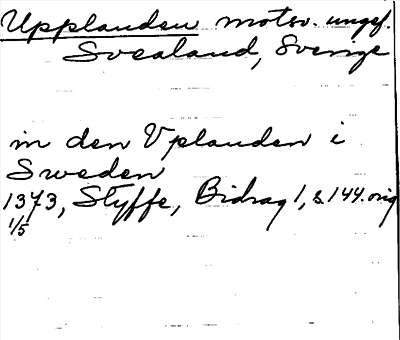 Upplanden motsv. ungef.
Svealand, Sverige
in den Vplanden i
Sweden
1373, Styffe, Bidrag 1, s. 144. orig
1/5